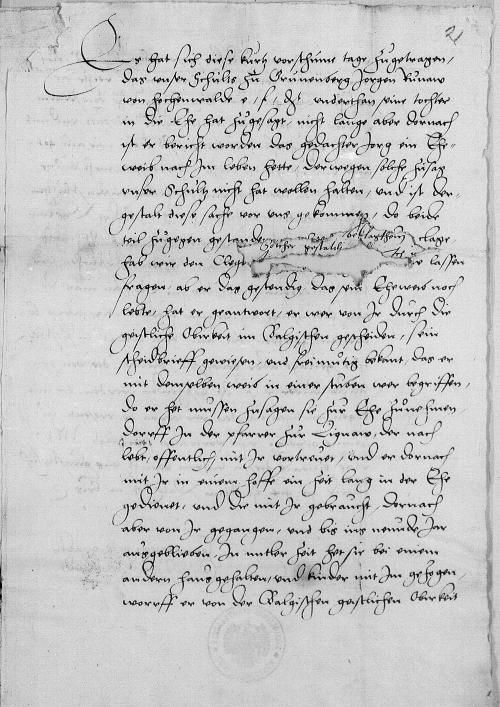 21
Es hat sich diese kurtz vorschinne tage zugetragen,
das unser Schultz zu Grunenberg Jorgen Kunaw
von Hochenwalde e, f, d underthan seine tochter
in die Ehe hat zugesagt, nicht lange aber dornach
ist er bericht worden das gedachter Jorg ein Ehe-
weib nach Im leben hette, derwegen solche zusag
unser Schultz nicht hat wollen halten, und ist der-
gestalt diese sache vor uns gekommen, do beide
teil zugegen gestanden clage
hab wir den lassen
fragen, ab er das gestendig, das sein Eheweib noch
lebte, hat er geantwort, er wer von Ir durch die
geistliche Obirkeit im gescheiden, sein
scheidbrieff gewiesen, und freimutig bekant, das er
mit demselben weib in einer stuben wer begriffen,
do er het mussen zusagen sie zur Ehe zunehmen,
dorauff In der pfarrer zur Lignaw, der nach
lebt, offentlich mit Ir vortreuet, und er dornach
mit Ir in einem hoffe ein zeit lang in der Ehe
gedienet, und die mit Ir gebraucht, dornach
aber von Ir gegangen, und bis ins neunde Jar
ausgeblieben, In mitler zeit het sie bei einem
andern hausgehalten, und kinder mit Im gezogen,
worauff er von der geistlichen Obirkeit